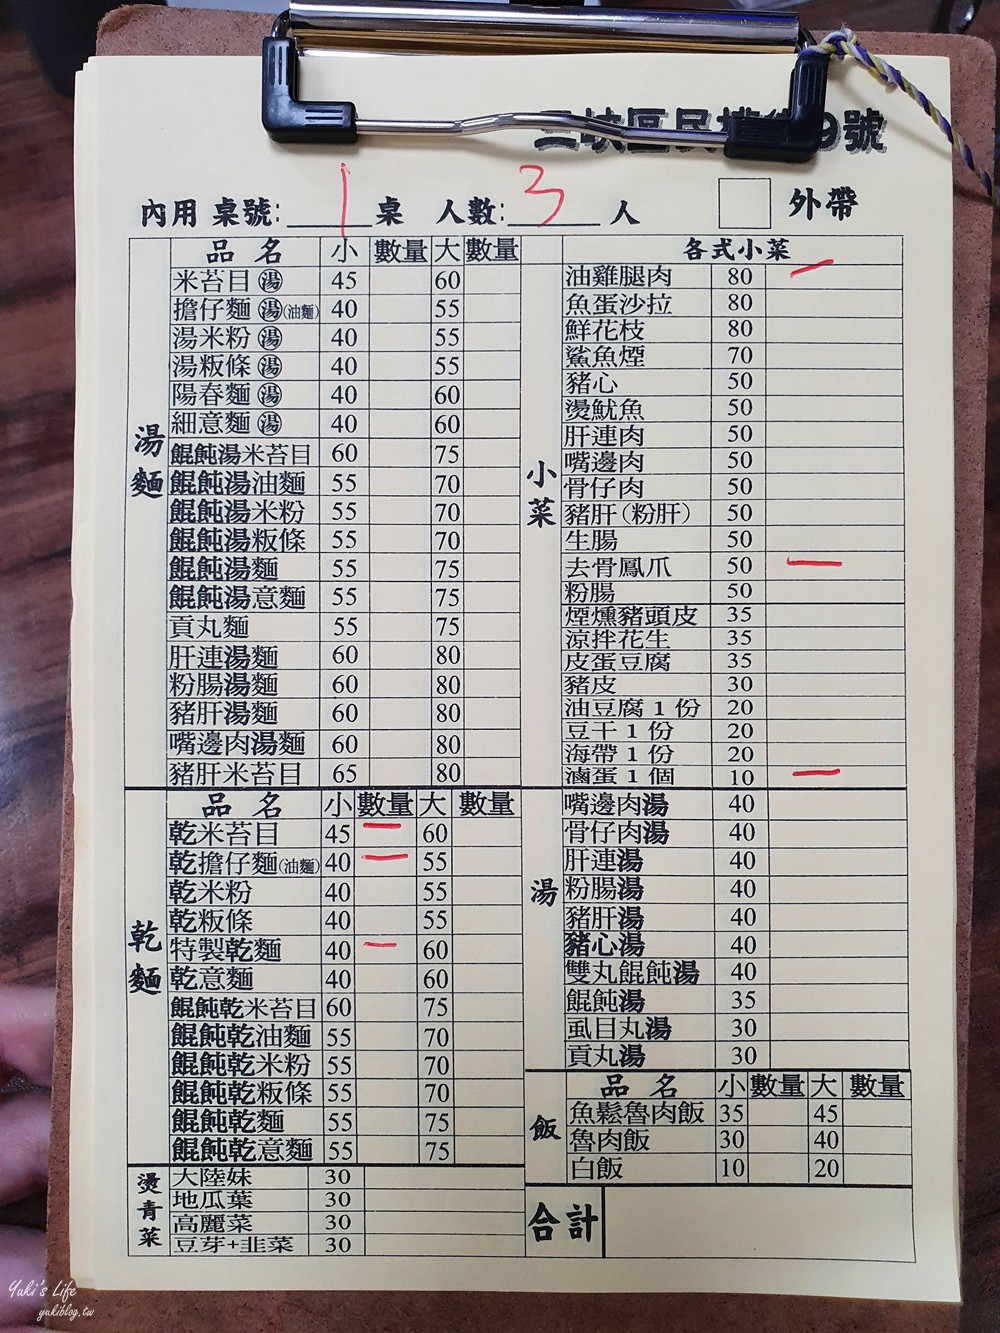 三峽區民權街 9號
內用 桌號: 1 桌 人數: 3 人 外帶
湯麵
品名 小 數量 大 數量
米苔目 湯 45 60
擔仔麵 湯(油麵) 40 55
湯米粉 湯 40 55
湯粄條 湯 40 55
陽春麵 湯 40 60
細意麵 湯 40 60
餛飩湯米苔目 60 75
餛飩湯油麵 55 70
餛飩湯米粉 55 70
餛飩湯粄條 55 70
餛飩湯麵 55 75
餛飩湯意麵 55 75
貢丸麵 55 75
肝連湯麵 60 80
粉腸湯麵 60 80
豬肝湯麵 60 80
嘴邊肉湯麵 60 80
豬肝米苔目 65 80
乾麵
品名 小 數量 大 數量
乾米苔目 45 一 60
乾擔仔麵(油麵) 40 一 55
乾米粉 40 55
乾粄條 40 55
特製乾麵 40 一 60
乾意麵 40 60
餛飩乾米苔目 60 75
餛飩乾油麵 55 70
餛飩乾米粉 55 70
餛飩乾粄條 55 70
餛飩乾麵 55 75
餛飩乾意麵 55 75
燙青菜
大陸妹 30
地瓜葉 30
高麗菜 30
豆芽+韭菜 30
小菜
各式小菜
油雞腿肉 80 一
魚蛋沙拉 80
鮮花枝 80
鯊魚煙 70
豬心 50
燙魷魚 50
肝連肉 50
嘴邊肉 50
骨仔肉 50
豬肝(粉肝) 50
生腸 50
去骨鳳爪 50 一
粉腸 50
煙燻豬頭皮 35
涼拌花生 35
皮蛋豆腐 35
豬皮 30
油豆腐 1 份 20
豆干 1 份 20
海帶 1 份 20
滷蛋 1 個 10 一
湯
嘴邊肉湯 40
骨仔肉湯 40
肝連湯 40
粉腸湯 40
豬肝湯 40
豬心湯 40
雙丸餛飩湯 40
餛飩湯 35
虱目丸湯 30
貢丸湯 30
飯
品名 小 數量 大 數量
魚鬆魯肉飯 35 45
魯肉飯 30 40
白飯 10 20
合計
Yuki's Life
yukiblog.tw